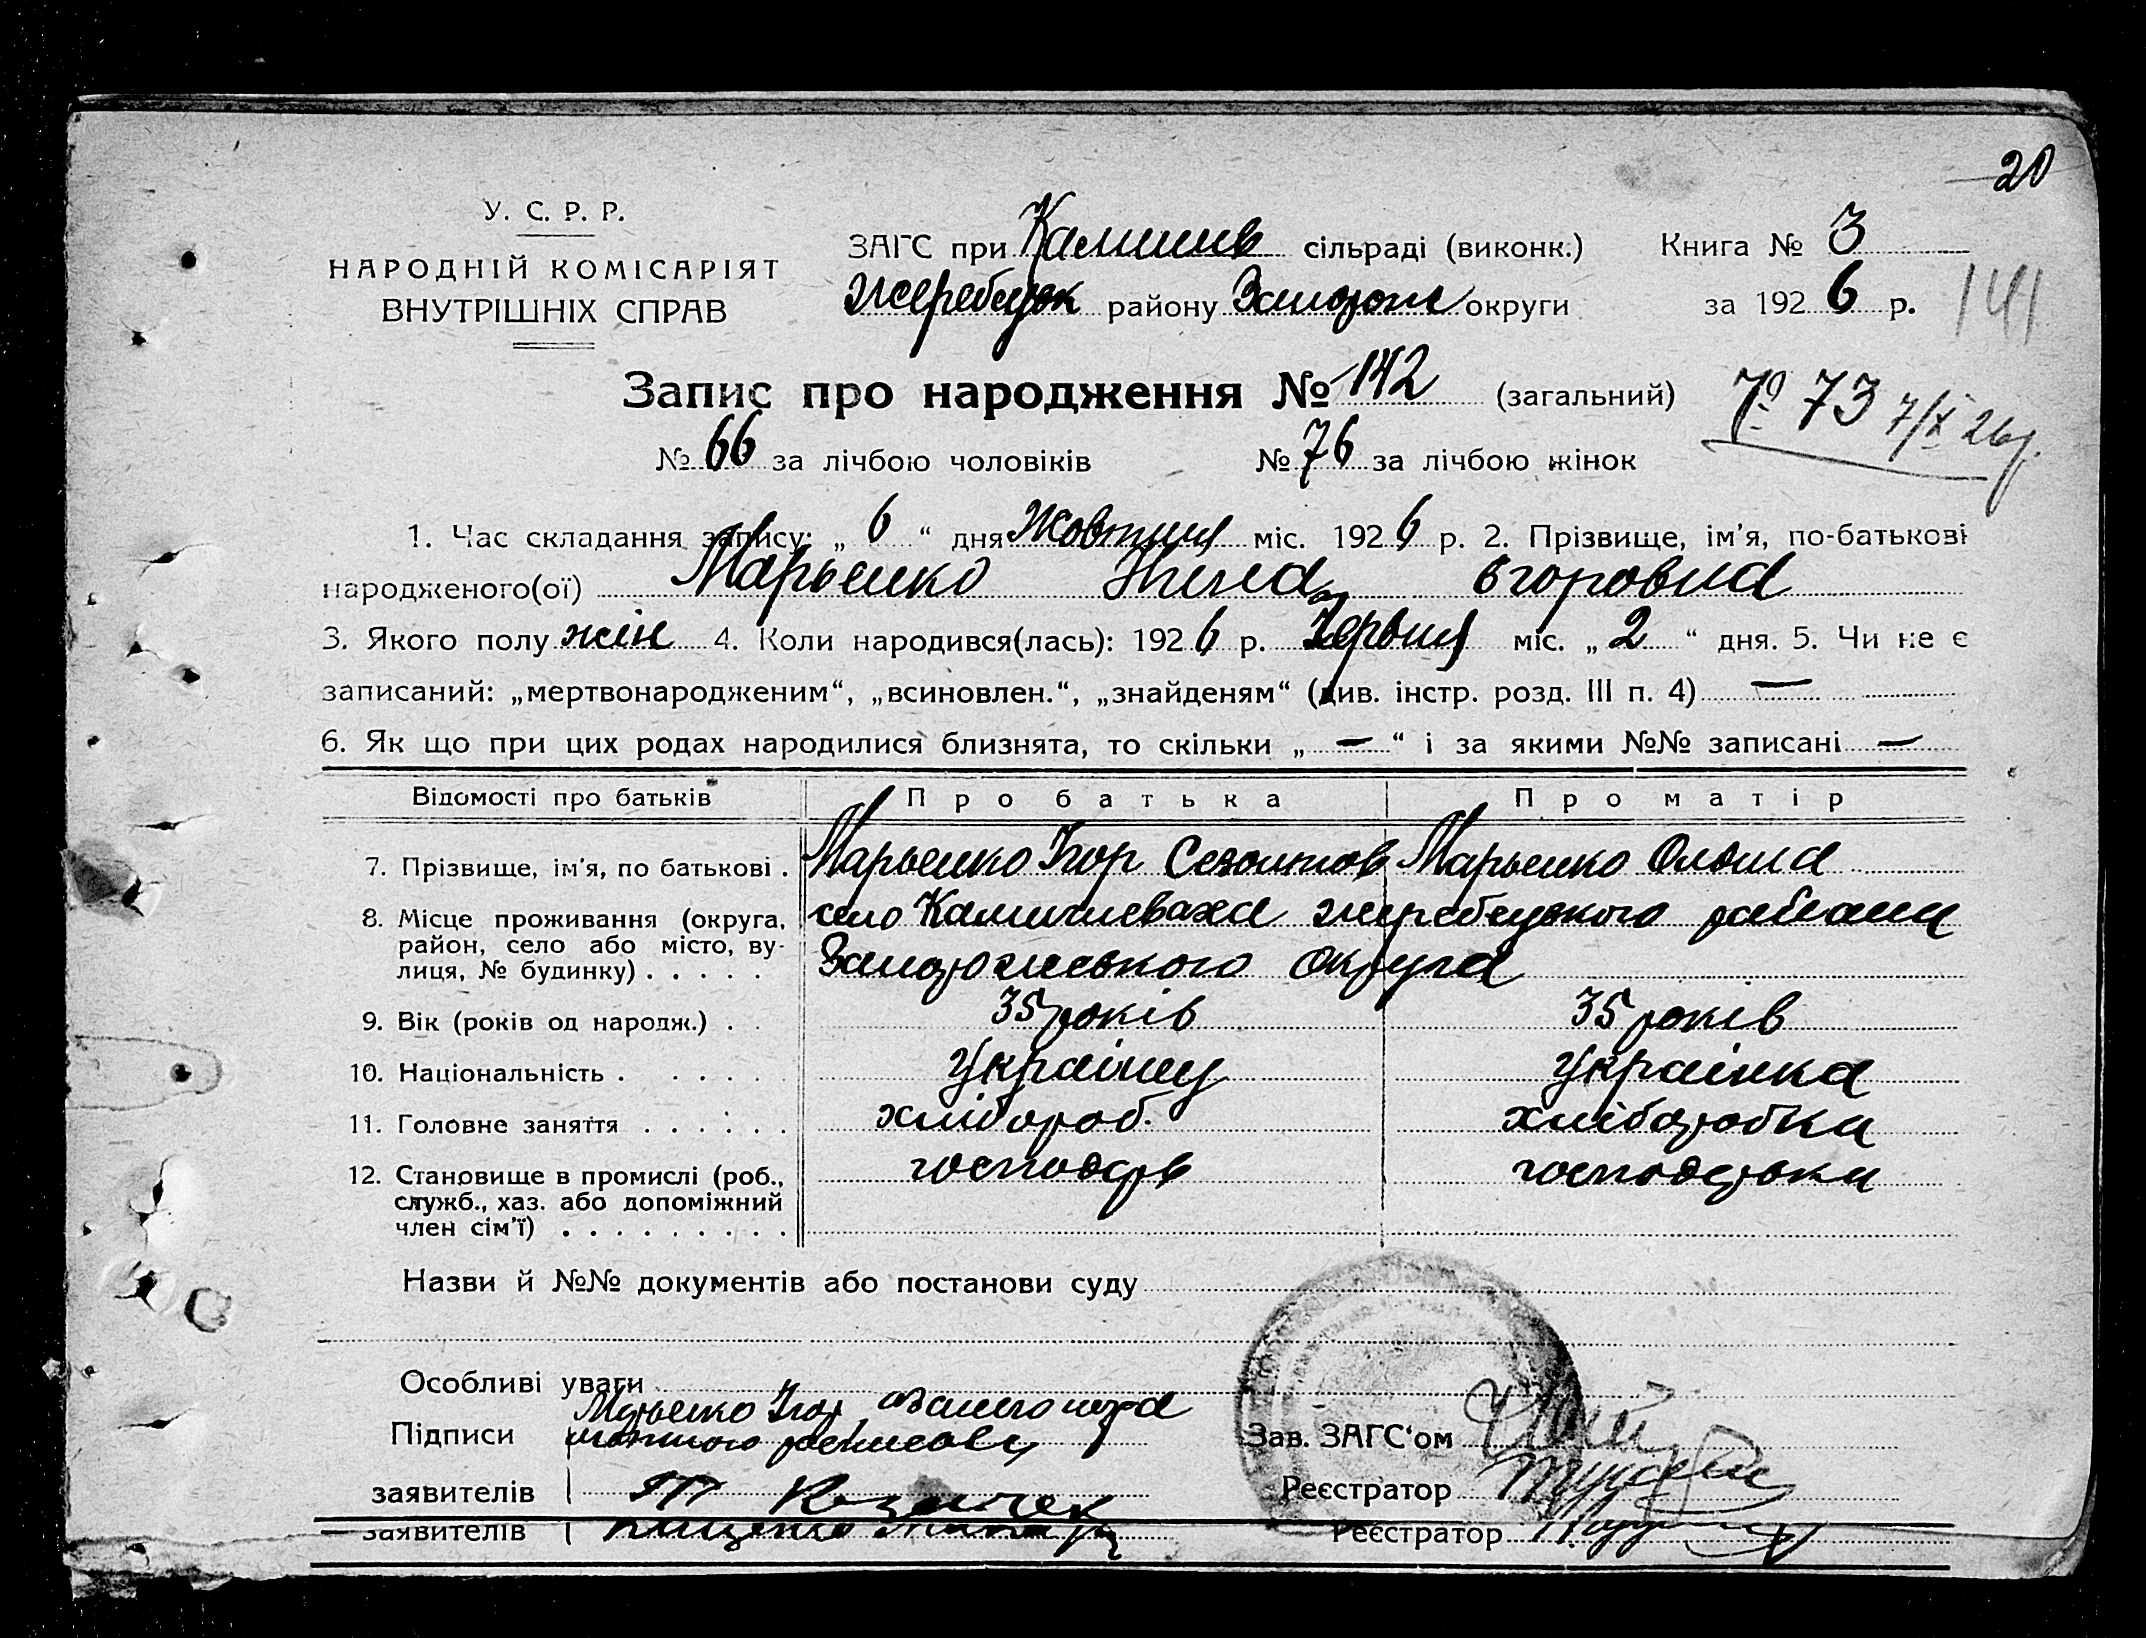 20
У. С. Р. Р.
НАРОДНІЙ КОМІСАРІЯТ
ВНУТРІШНІХ СПРАВ
ЗАГС при Камишев сільраді (виконк.) Книга № 3
Жеребецьк району Запорож округи за 1926 р.
141
Запис про народження № 142 (загальний)
№ 73 7/X 26 р.
№ 66 за лічбою чоловіків № 76 за лічбою жінок
1. Час складання запису: „ 6 “ дня Жовтня міс. 1926 р. 2. Прізвище, ім'я, по-батькові
народженого(ої) Марьенко Егоровна
3. Якого полу жін 4. Коли народився(лась): 1926 р. Червня міс. „ 2 “ дня. 5. Чи не є
записаний: „мертвонародженим“, „всиновлен.“, „знайденям“ (див. інстр. розд. III п. 4) —
6. Як що при цих родах народилися близнята, то скільки „ — “ і за якими №№ записані —
Відомості про батьків Про батька Про матір
7. Прізвище, ім'я, по батькові . Марьенко Ігор Марьенко
8. Місце проживання (округа, село Камишеваха жеребецького района
район, село або місто, ву-
лиця, № будинку) . . . . . Запорожського округа
9. Вік (років од народж.) . . 35 років 35 років
10. Національність . . . . . . українец українка
11. Головне заняття . . . . . . хлібороб. хліборобка
12. Становище в промислі (роб., господарь господарька
служб., хаз. або допоміжний
член сім'ї) . . . . . . . . .
Назви й №№ документів або постанови суду
Особливі уваги
Марьенко Ігор
Підписи Зав. ЗАГС'ом
заявителів Реєстратор
заявителів Реєстратор